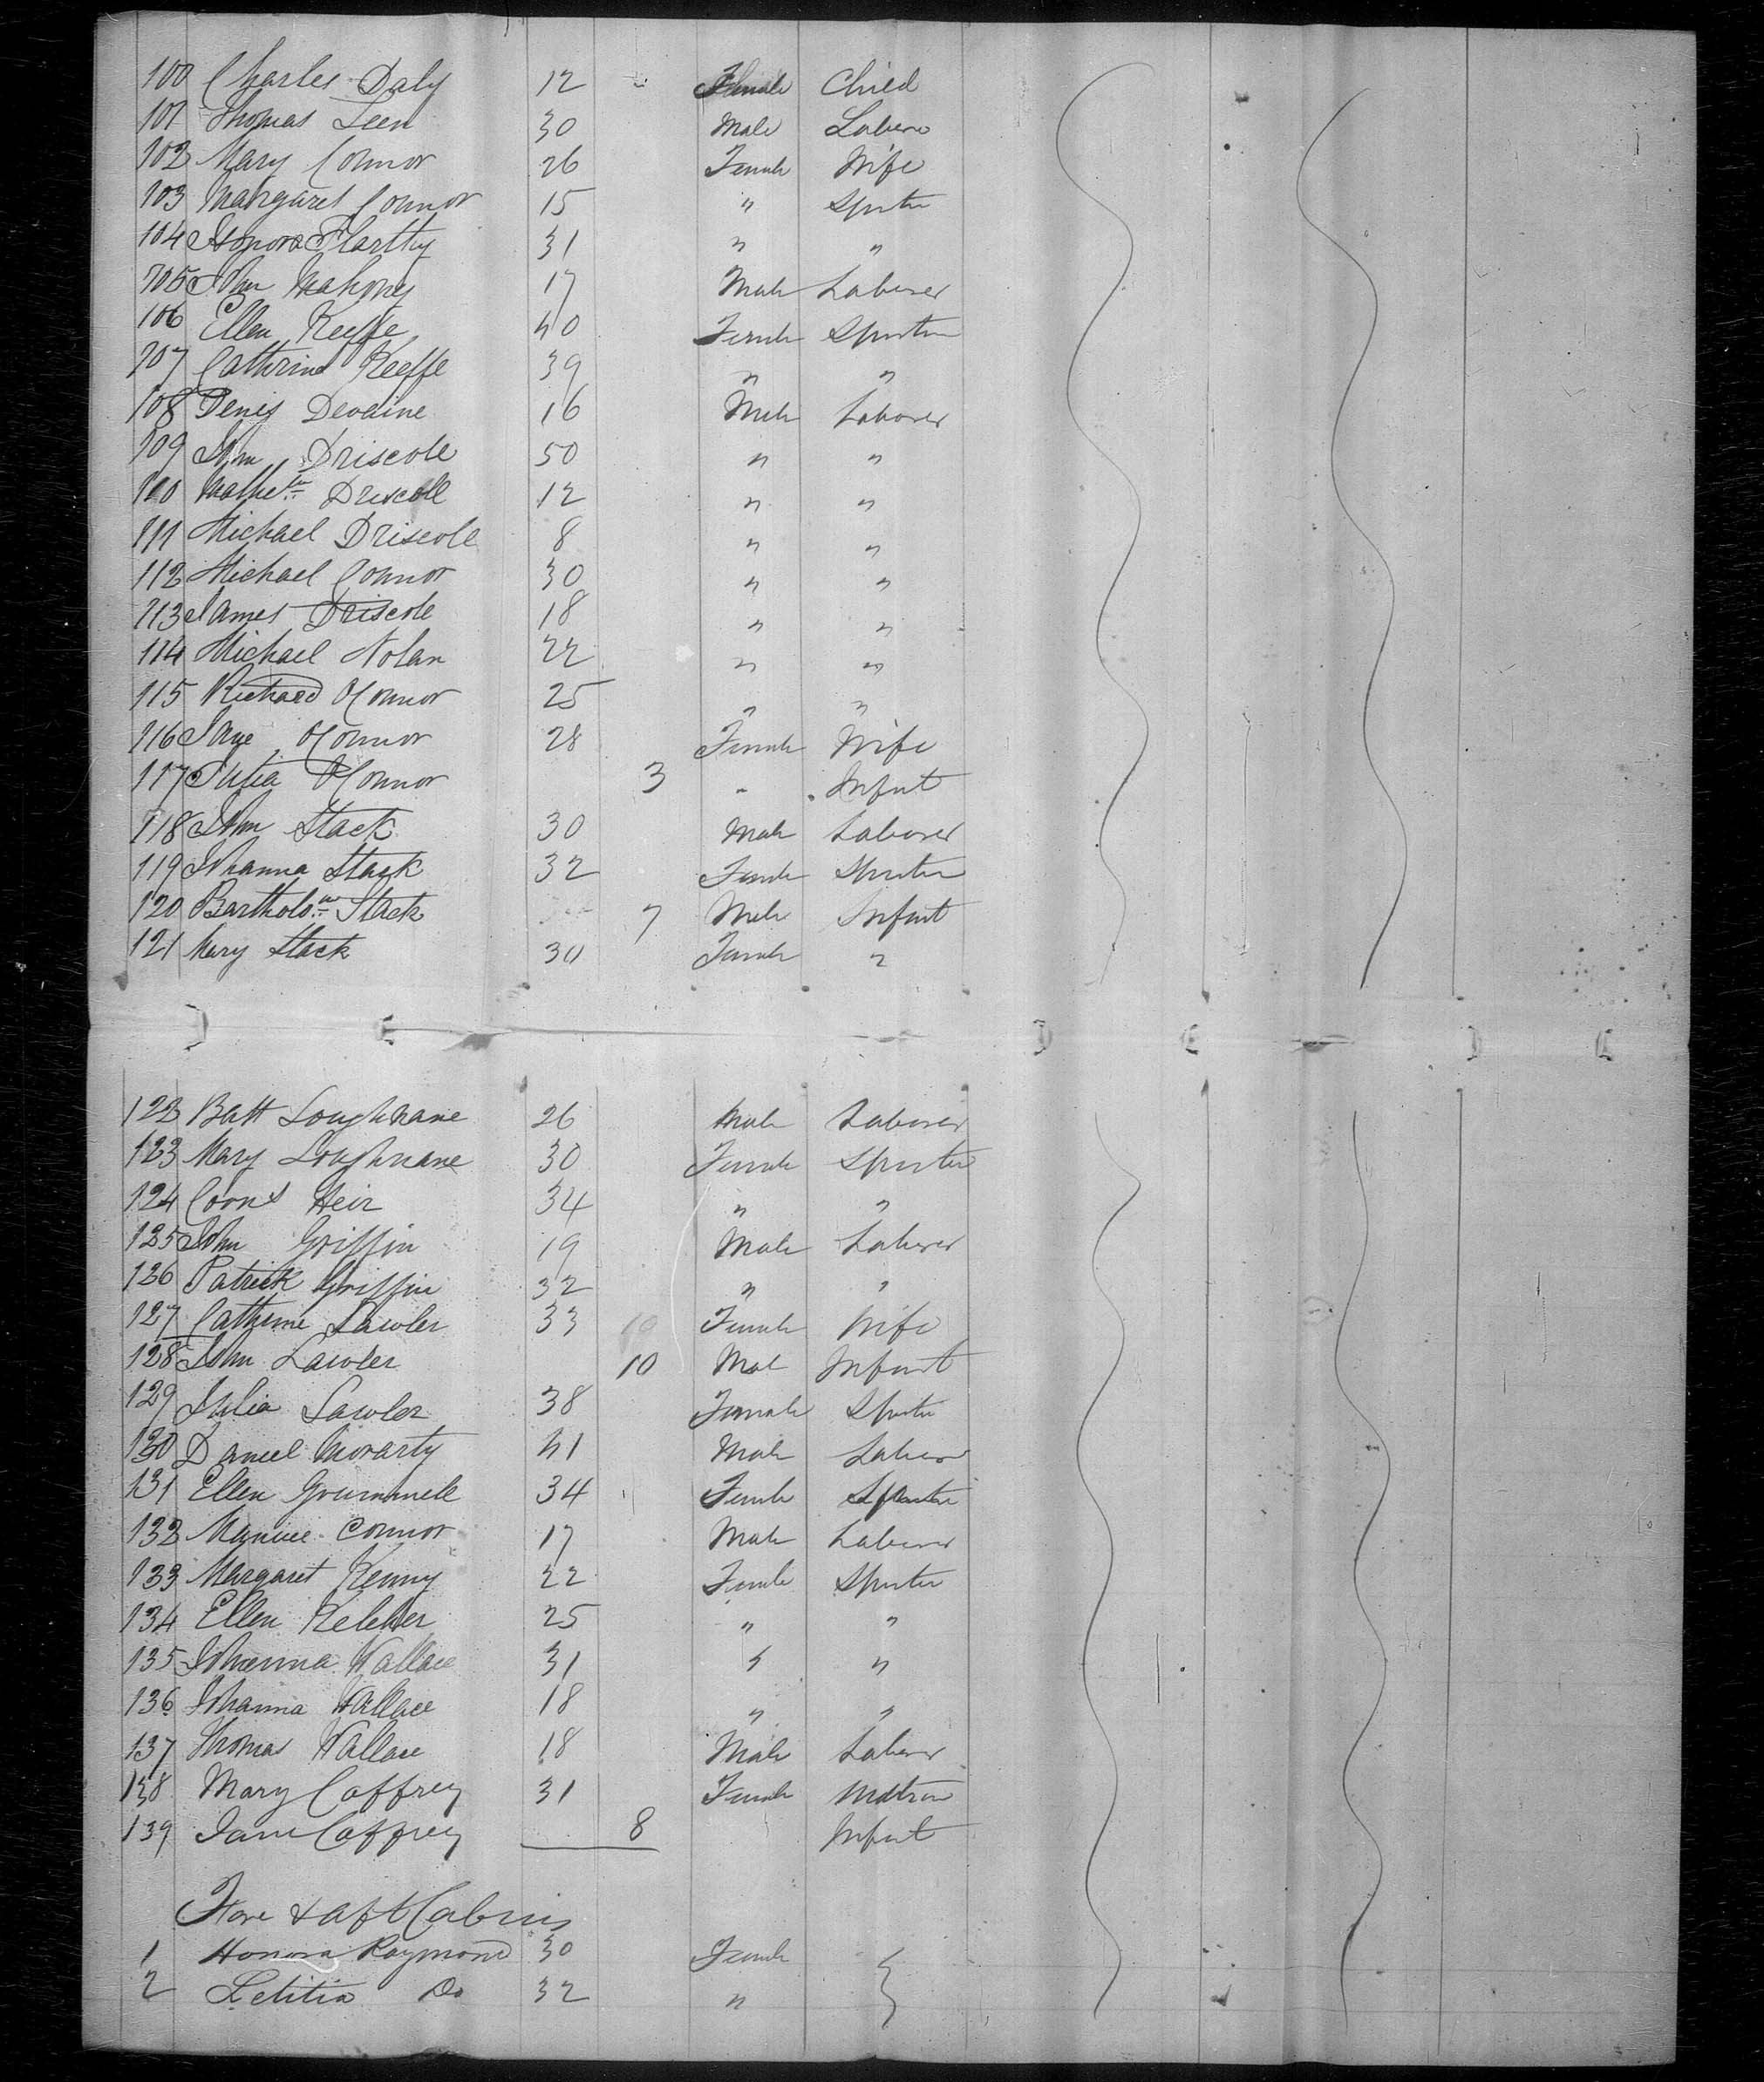 100 Charles Daly 12 " Female Child
101 Thomas Leen 30 Male Labero
102 Mary Connor 26 Female Wife
103 Margaret Connor 15 " Spinster
104 Honora 31 " "
105 John Mahony 17 Male Laborer
106 Ellen Keeffe 40 Female Spinster
107 Catherine Keeffe 39 " "
108 Denis Devaine 16 Male Laborer
109 John Driscole 50 " "
110 Driscoll 12 " "
111 Michael Driscole 8 " "
112 Michael Connor 30 " "
113 James Driscole 18 " "
114 Michael Nolan 22 " "
115 Richard OConnor 25 " "
116 Jane OConnor 28 Female Wife
117 Julia OConnor 3 " Infant
118 John Stack 30 Male Laborer
119 Johanna Stack 32 Female Spinster
120 Bartholow Stack 7 Male Infant
121 Mary Stack 30 Female "
122 Batt Loughnane 26 Male Laborer
123 Mary Loughnane 30 Female Spinster
124 34 " "
125 John Griffin 19 Male Laborer
126 Patrick Griffin 32 " "
127 Catherine Lawler 33 10 Female Wife
128 John Lawler 10 Male Infant
129 Julia Lawler 38 Female Spinster
130 Daniel Morarty 41 Male Laborer
131 Ellen Grummell 34 Female Spinster
132 Connor 17 Male Laborer
133 Margaret Kenny 22 Female Spinster
134 Ellen Keleher 25 " "
135 Johanna Wallace 31 " "
136 Johanna Wallace 18 " "
137 Thomas Wallace 18 Male Laborer
138 Mary Caffrey 31 Female Matron
139 Jane Caffrey 8 Infant
Fore & aft Cabins
1 Honora Raymond 30 Female
2 Letitia Do 32 "